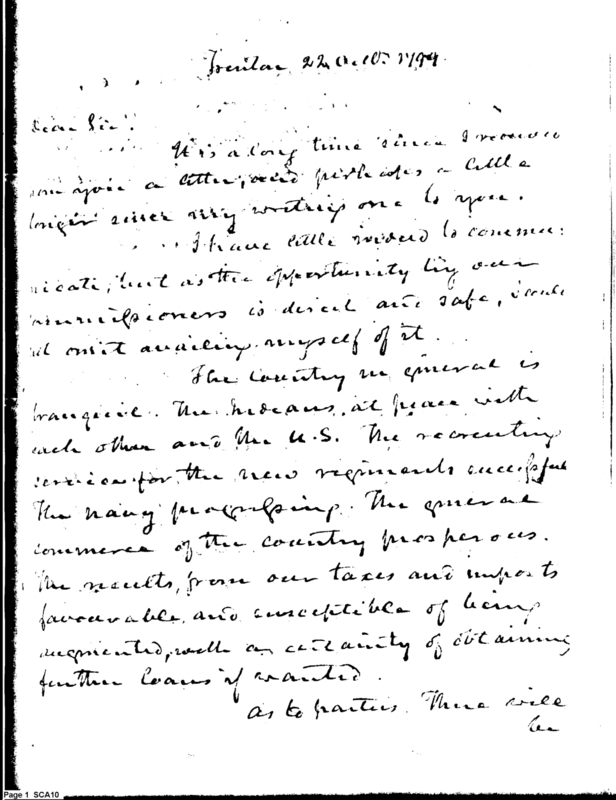 Trenton 22 Octo. 1799
Dear Sir.
It is a long time since I received
from you a letter, and perhaps a little
longer since my writing one to you.
I have little indeed to commu:
nicate, but as the opportunity by our
commissioners is direct and safe, I could
not omit availing myself of it.
The Country in general is
tranquil. The Indians, at peace with
each other and the U.S. The recruiting
service for the new regiments successful
The navy progressing. The general
commerce of the country prosperous.
The results, from our taxes and imposts
favourable and susceptible of being
augmented, with a certainty of obtaining
further loans if wanted.
As to parties. There will
be
Page 1 SCA10